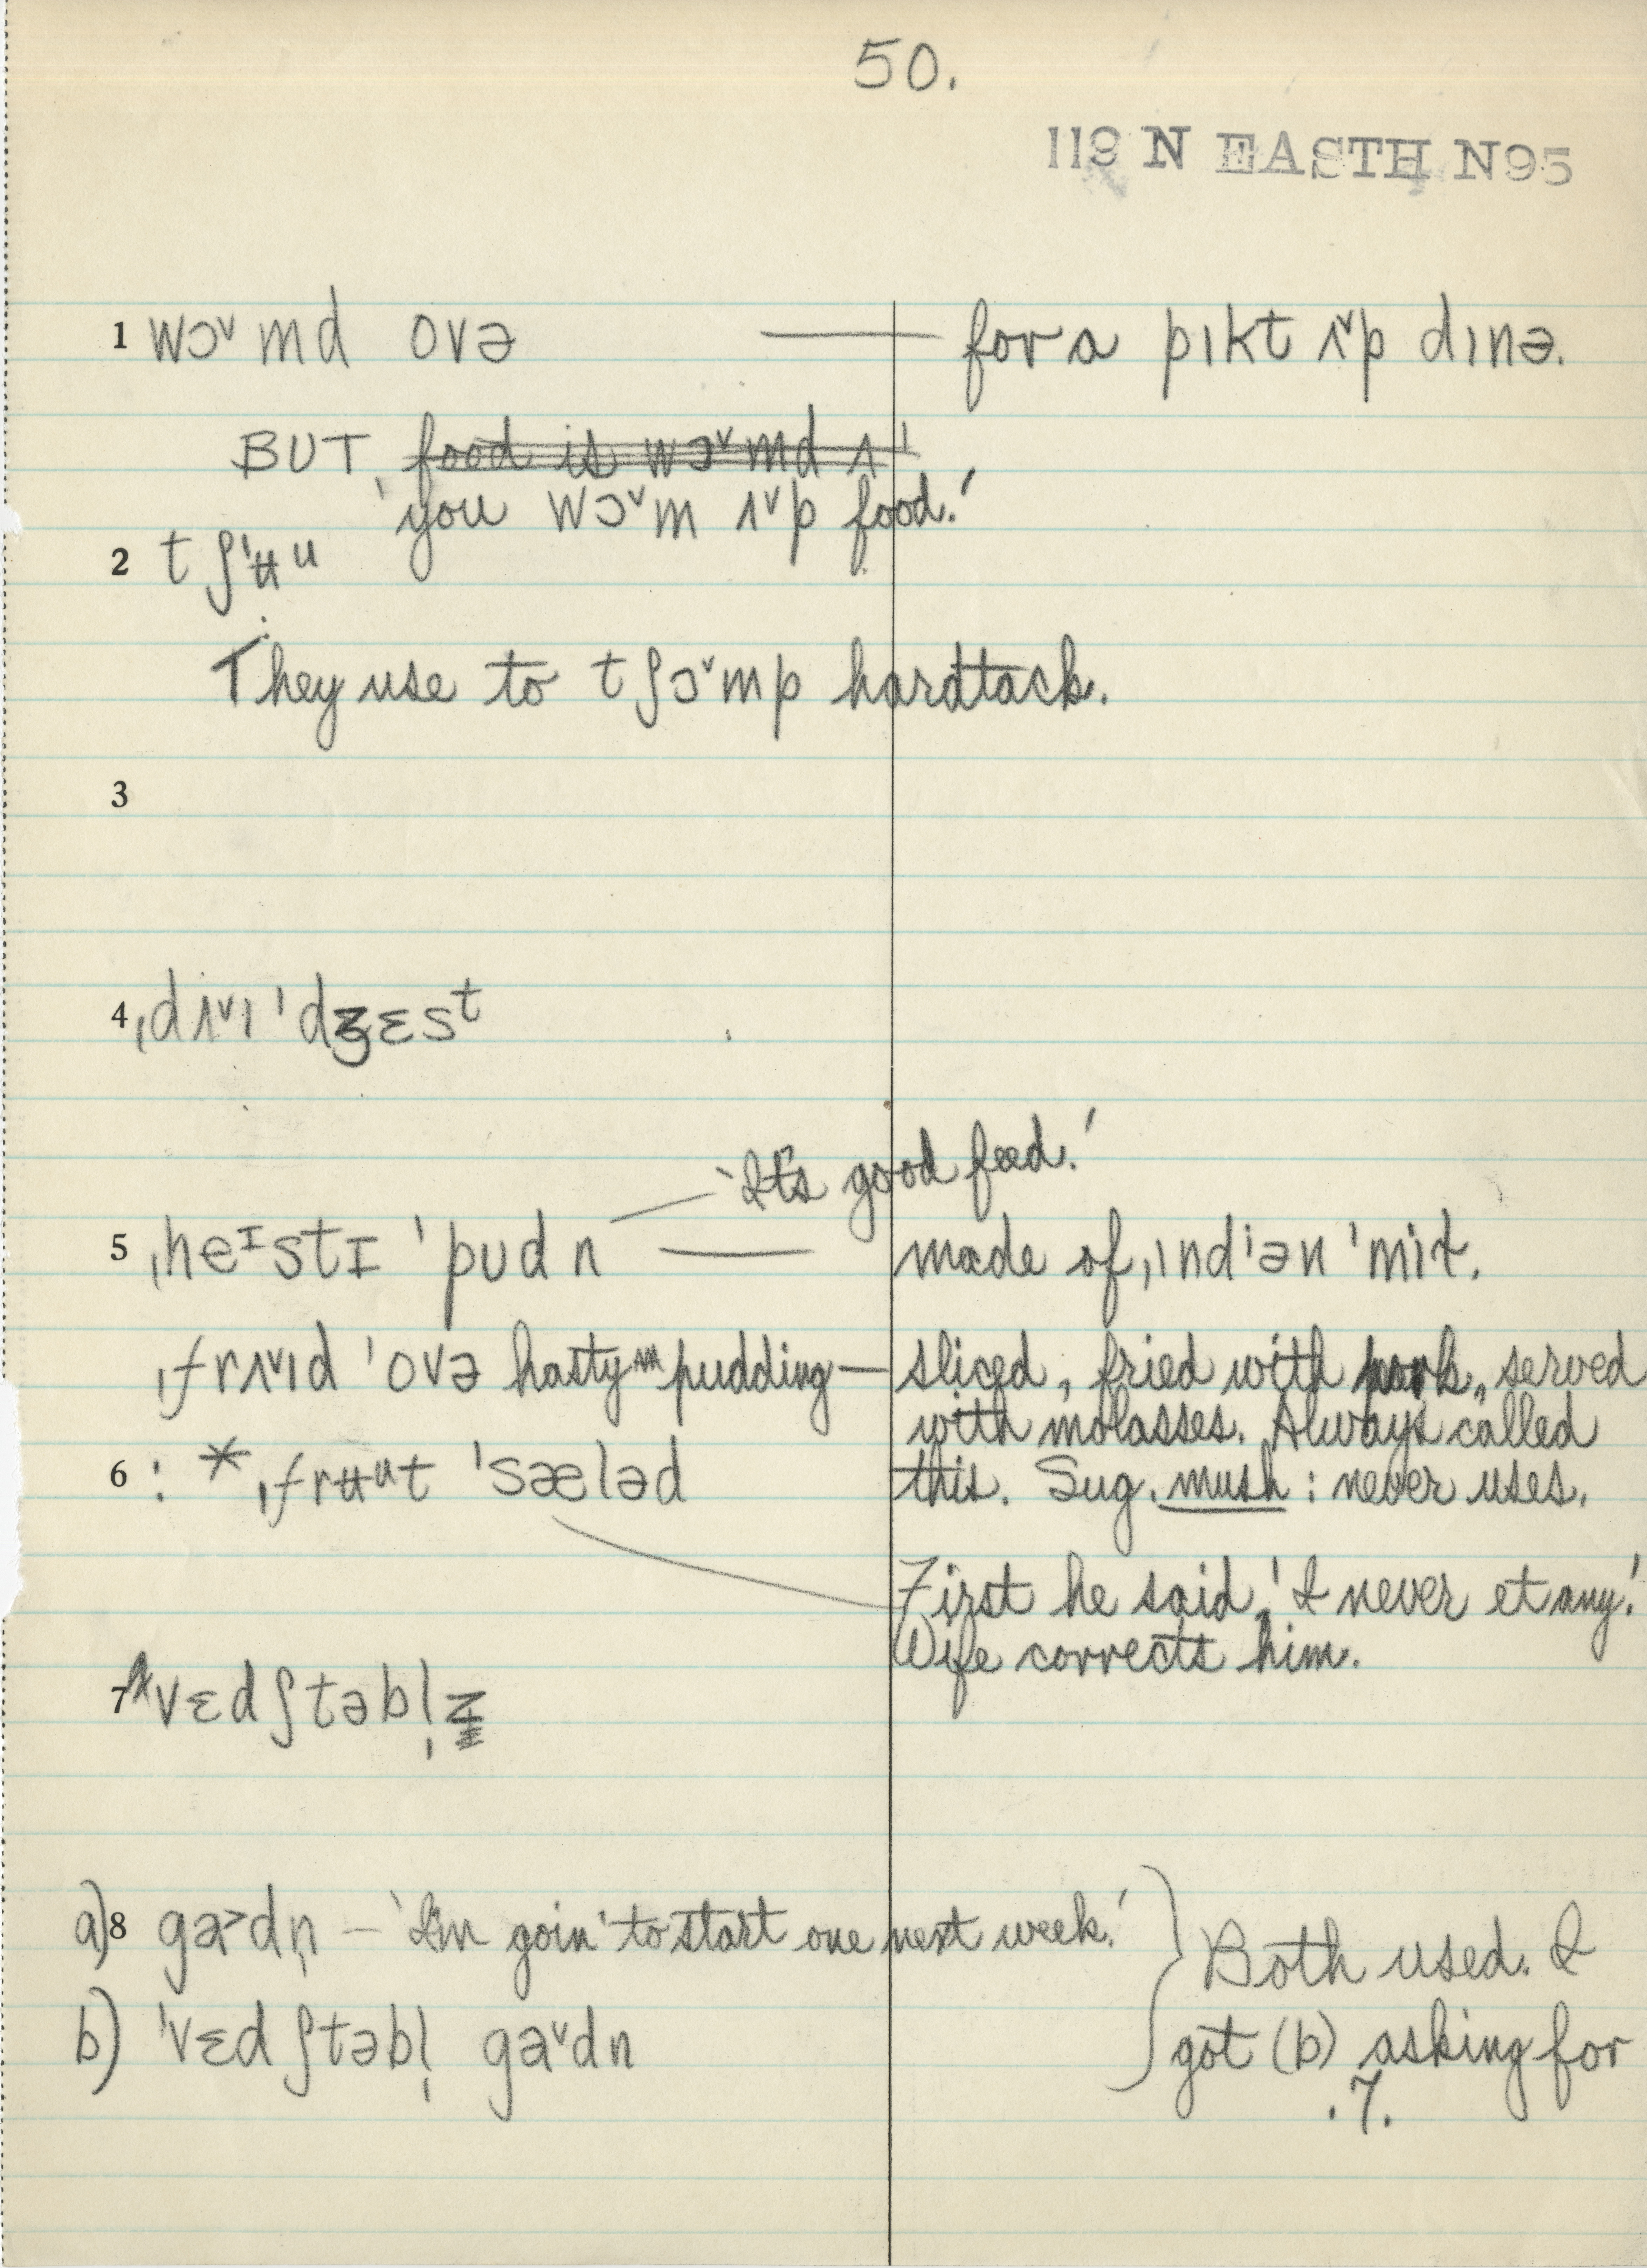 50.
119 N EASTH N95
1 wɔ˅md ovə — for a pɪkt ʌ˅p dɪnə.
BUT food is wɔ˅md ʌ
'you wɔ˅m ʌ˅p food.'
2 tʃ'ʉᵘ
They use to tʃɔ˅mp hardtack.
3
4 ˌdʌ˅ɪ'dʒɛsᵗ
'It's good feed.'
5 ˌheᶦstɪ 'pʊdn — made of ˌɪndᶦən 'mit.
ˌfrʌ˅ɪd 'ovə hasty pudding — sliced, fried with pork, served
with molasses. Always called
6 : * ˌfrʉᵘt 'sæləd this. Sug. mush: never uses.
First he said, 'I never et any.'
Wife corrects him.
7 vɛdʃtəbl̩z
a) 8 ga˃dn̩ — 'I'm goin' to start one next week.' } Both used. I
b) 'vɛdʃtəbl̩ ga˅dn got (b) asking for
.7.